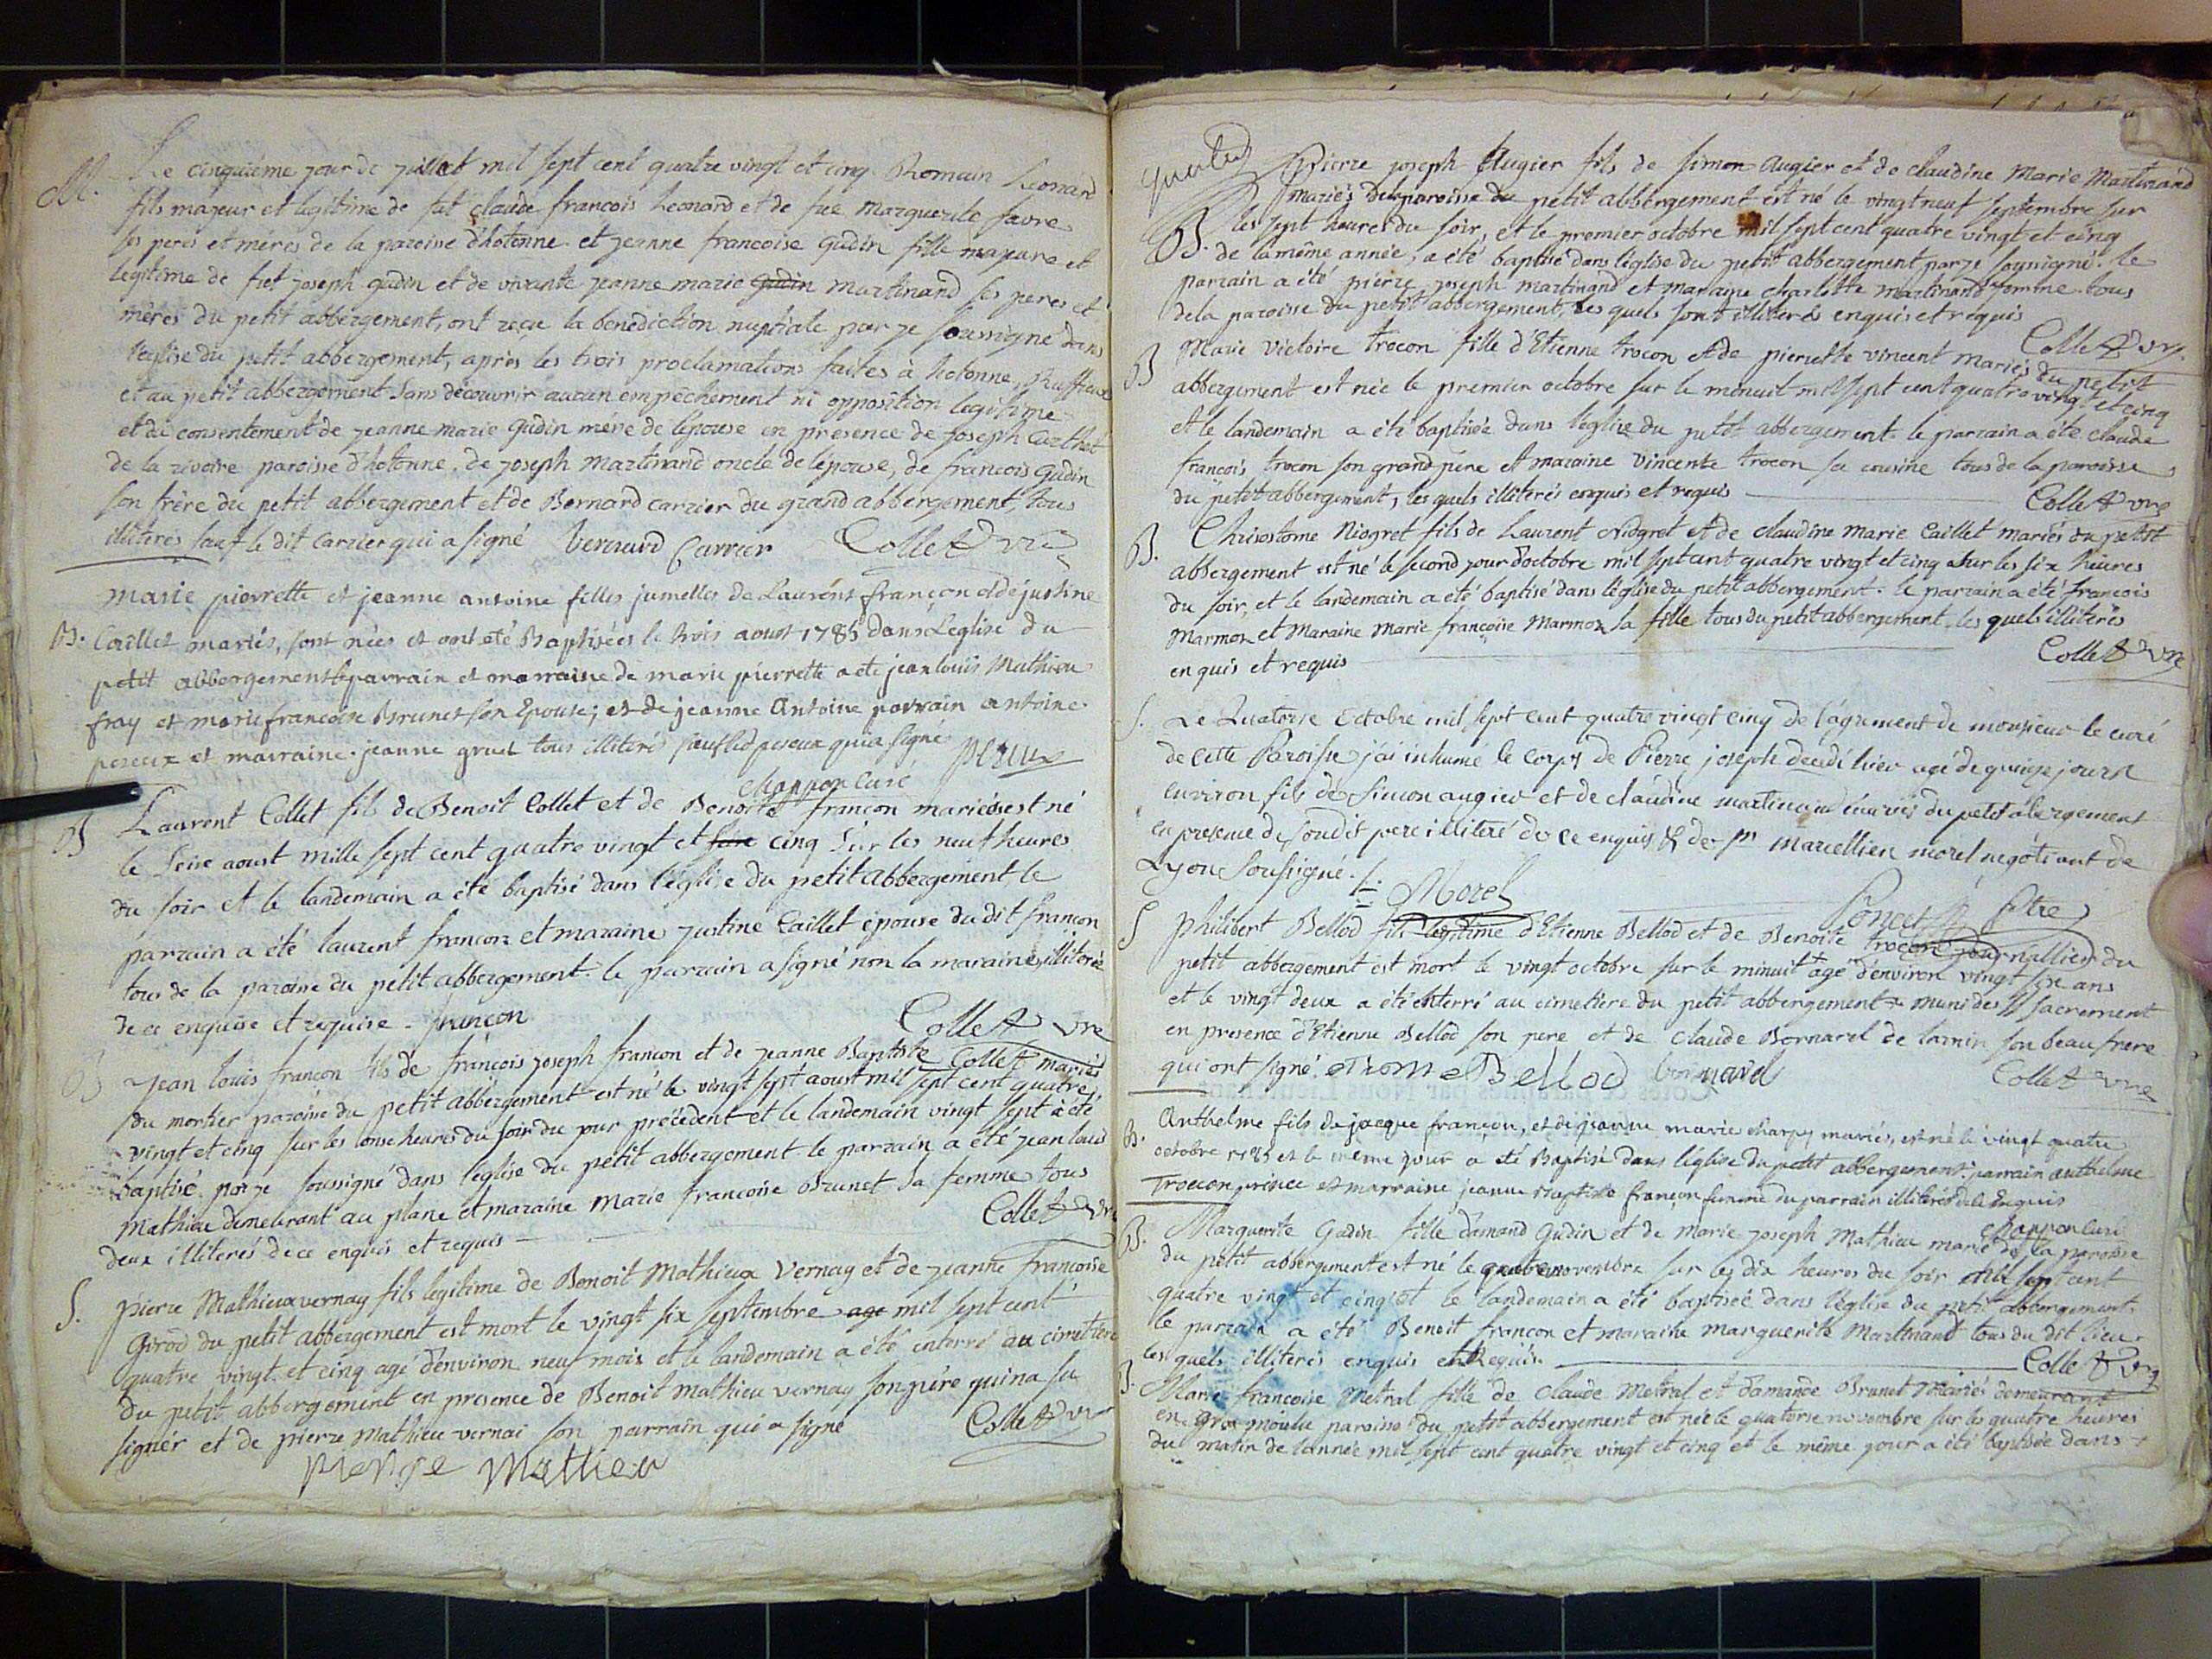 M. Le cinquième jour de juillet mil sept cent quatre vingt et cinq Romain Leonard
fils majeur et legitime de fut claude francois Leonard et de fue Marguerite favre
ses peres et méres de la paroise d'hotonne et jeanne francoise Gudin fille majeure et
legitime de fut joseph gudin et de vivante jeanne marie gudin martinand ses peres et
méres du petit abbergement, ont reçu la benediction nuptiale par je soussigné dans
l'eglise du petit abbergement, après les trois proclamations faites à hotonne, Ruffieux
et au petit abbergement sans découvrir aucun empêchement ni opposition legitime
et du consentement de jeanne marie Gudin mére de l'épouse en presence de joseph
de la rivoire paroisse d'hotonne, de joseph Martinand oncle de l'épouse, de francois Gudin
son frère du petit abbergement et de Bernard carrier du grand abbergement, tous
illiterés sauf le dit carrier qui a signé Bernard Carrier Collet vre
marie pierrette et jeanne antoine filles jumelles de Laurent françon et de justine
B. Caillet mariés, sont nées et ont été Baptisées le trois aoust 1785 dans L'eglise du
petit abbergement le parrain et marraine de marie pierrette a ete jean louis Mathieu
fray et marie francoise Brunet son Epouse; et de jeanne Antoine parrain antoine
pereux et marraine jeanne gruel tous illiteré sauf led pereux qui a signé pereux
chappon curé
B Laurent Collet fils de Benoit Collet et de Benoite françon mariés est né
le seise aoust mille sept cent quatre vingt et cinq sur les neuf heures
du soir et le landemain a été baptisé dans l'église du petit abbergement, le
parrain a été laurent françon et maraine justine Caillet épouse du dit françon
tous de la paroise du petit abbergement. le parrain a signé non la maraine illiterée
de ce enquise et requise - françon Collet vre
B jean louis françon fils de françois joseph françon et de jeanne Baptiste Collet mariés
du mortier paroise du petit abbergement est né le vingt sept aoust mil sept cent quatre
vingt et cinq sur les onse heures du soir du jour précédent et le landemain vingt sept à été
baptisé par je soussigné dans l'église du petit abbergement le parrain a été jean louis
Mathieu demeurant au plane et maraine Marie francoise Brunet sa femme tous
deux illiterés de ce enquis et requis - Collet vre
S. pierre Mathieux vernay fils legitime de Benoit Mathieux Vernay et de jeanne françoise
Girod du petit abbergement est mort le vingt six septembre age mil sept cent
quatre vingt et cinq agé d'environ neuf mois et le landemain a été enterré au cimetiere
du petit abbergement en presence de Benoit Mathieu vernay son père qui na su
signér et de pierre Mathieu vernai son parrain qui a signé Collet vre
pierre Mathieu
Pierre joseph Augier fils de simon Augier et de claudine Marie Martinand
mariés dela paroisse du petit abbergement est né le vingt neuf septembre sur
B. les sept heures du soir, et le premier octobre mil sept cent quatre vingt et cinq
de la même année, a été baptisé dans l'église du petit abbergement par je soussigné. le
parrain a été pierre joseph martinand et maraine charlotte martinand tous
dela paroisse du petit abbergement, les quels sont illiterés enquis et requis
Collet vre
B Marie Victoire trocon fille d'Etienne trocon et de pierrette vincent mariés du petit
abbergement est née le premier octobre sur le menuit mil sept cent quatre vingt et cinq
et le landemain a été baptisée dans l'église du petit abbergement. le parrain a été claude
françois trocon son grand pere et maraine vincente trocon sa cousine tous de la paroisse
du petit abbergement, les quels illiterés enquis et requis Collet vre
B. Chrisostome Niogret fils de Laurent Niogret et de claudine Marie Caillet mariés du petit
abbergement est né le second jour d'octobre mil sept cent quatre vingt et cinq sur les six heures
du soir, et le landemain a été baptisé dans l'église du petit abbergement. le parrain a été francois
Marmon et Maraine Marie françoise Marmon sa fille tous du petit abbergement, les quels illiterés
enquis et requis Collet vre
S. Le Quatorse Octobre mil sept cent quatre vingt cinq de l'agrement de monsieur le curé
de cette Paroisse j'ai inhumé le corps de Pierre joseph décédé hier agé de quinze jours
environ fils de Simon augier et de claudine martinand mariés du petit abergement
en presence de soudit pere illiteré de ce enquis & de sr marcellien morel négotiant de
Lyon soussigné. Morel
Poncet Ptre
S philibert Bellod fils legitime d'Etienne Bellod et de Benoite trocon journallier du
petit abbergement est mort le vingt octobre sur le minuit agé d'environ vingt six ans
et le vingt deux a été enterré au cimetiere du petit abbergement muni des sacrement
en presence d'Etienne Bellod son pere et de claude Bornarel de lamin son beau frere
qui ont signé. etienne Bellod Collet vre
B. Anthelme fils de jacque françon, et de jeanne marie charpy mariés, est né le vingt quatre
octobre 1785 et le meme jour a été Baptisé dans l'église du petit abbergement; parrain anthelme
Trocon prince et marraine jeanne Baptiste françon femme du parrain illiterés de ce Enquis
chappon curé
B. Marguerite Gudin fille damand Gudin et de Marie joseph Mathieu marié de la paroisse
du petit abbergement est né le quatre novembre sur les dix heures du soir mil sept cent
quatre vingt et cinq et le landemain a été baptisée dans l'église du petit abbergement.
le parrain a été Benoit françon et maraine Marguerite Martinand tous du dit lieu
les quels illiterés enquis et Requis. Collet vre
B. Marie francoise Metral fille de claude Metral et damande Brunet mariés demeurant
en gros moulu paroise du petit abbergement est née le quatorse novembre sur les quatre heures
du matin de l'année mil sept cent quatre vingt et cinq et le même jour a été baptisée dans